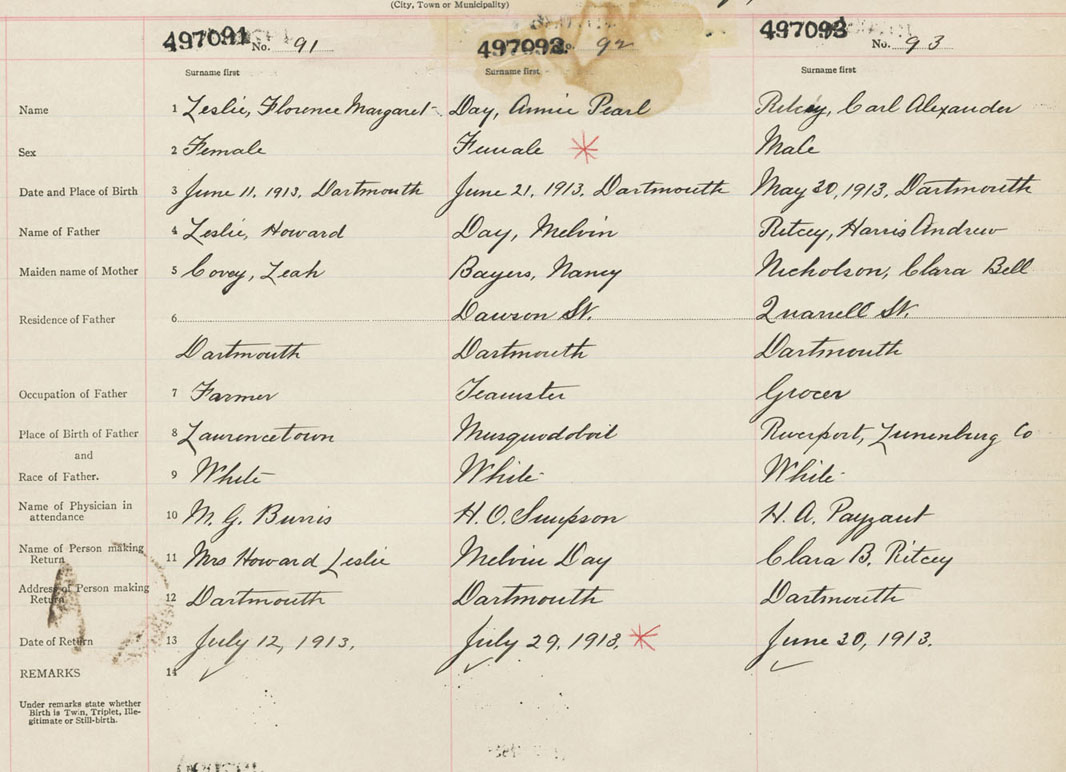 (City, Town or Municipality)
497091 No. 91 497092 No. 92 497093 No. 93
Surname first Surname first Surname first
Name 1 Leslie, Florence Margaret Day, Annie Pearl Ritcey, Carl Alexander
Sex 2 Female Female Male
Date and Place of Birth 3 June 11, 1913, Dartmouth June 21, 1913, Dartmouth May 20, 1913, Dartmouth
Name of Father 4 Leslie, Howard Day, Melvin Ritcey, Harris Andrew
Maiden name of Mother 5 Covey, Leah Bayers, Nancy Nicholson, Clara Bell
Residence of Father 6 Dawson St. Quarrell St.
Dartmouth Dartmouth Dartmouth
Occupation of Father 7 Farmer Teamster Grocer
Place of Birth of Father 8 Lawrencetown Musquodoboit Riverport, Lunenburg Co
and
Race of Father. 9 White White White
Name of Physician in attendance 10 M. G. Burris H. O. Simpson H. A. Payzant
Name of Person making Return 11 Mrs Howard Leslie Melvin Day Clara B. Ritcey
Address of Person making Return 12 Dartmouth Dartmouth Dartmouth
Date of Return 13 July 12, 1913. July 29, 1913. June 30, 1913.
REMARKS 14
Under remarks state whether
Birth is Twin, Triplet, Ille-
gitimate or Still-birth.